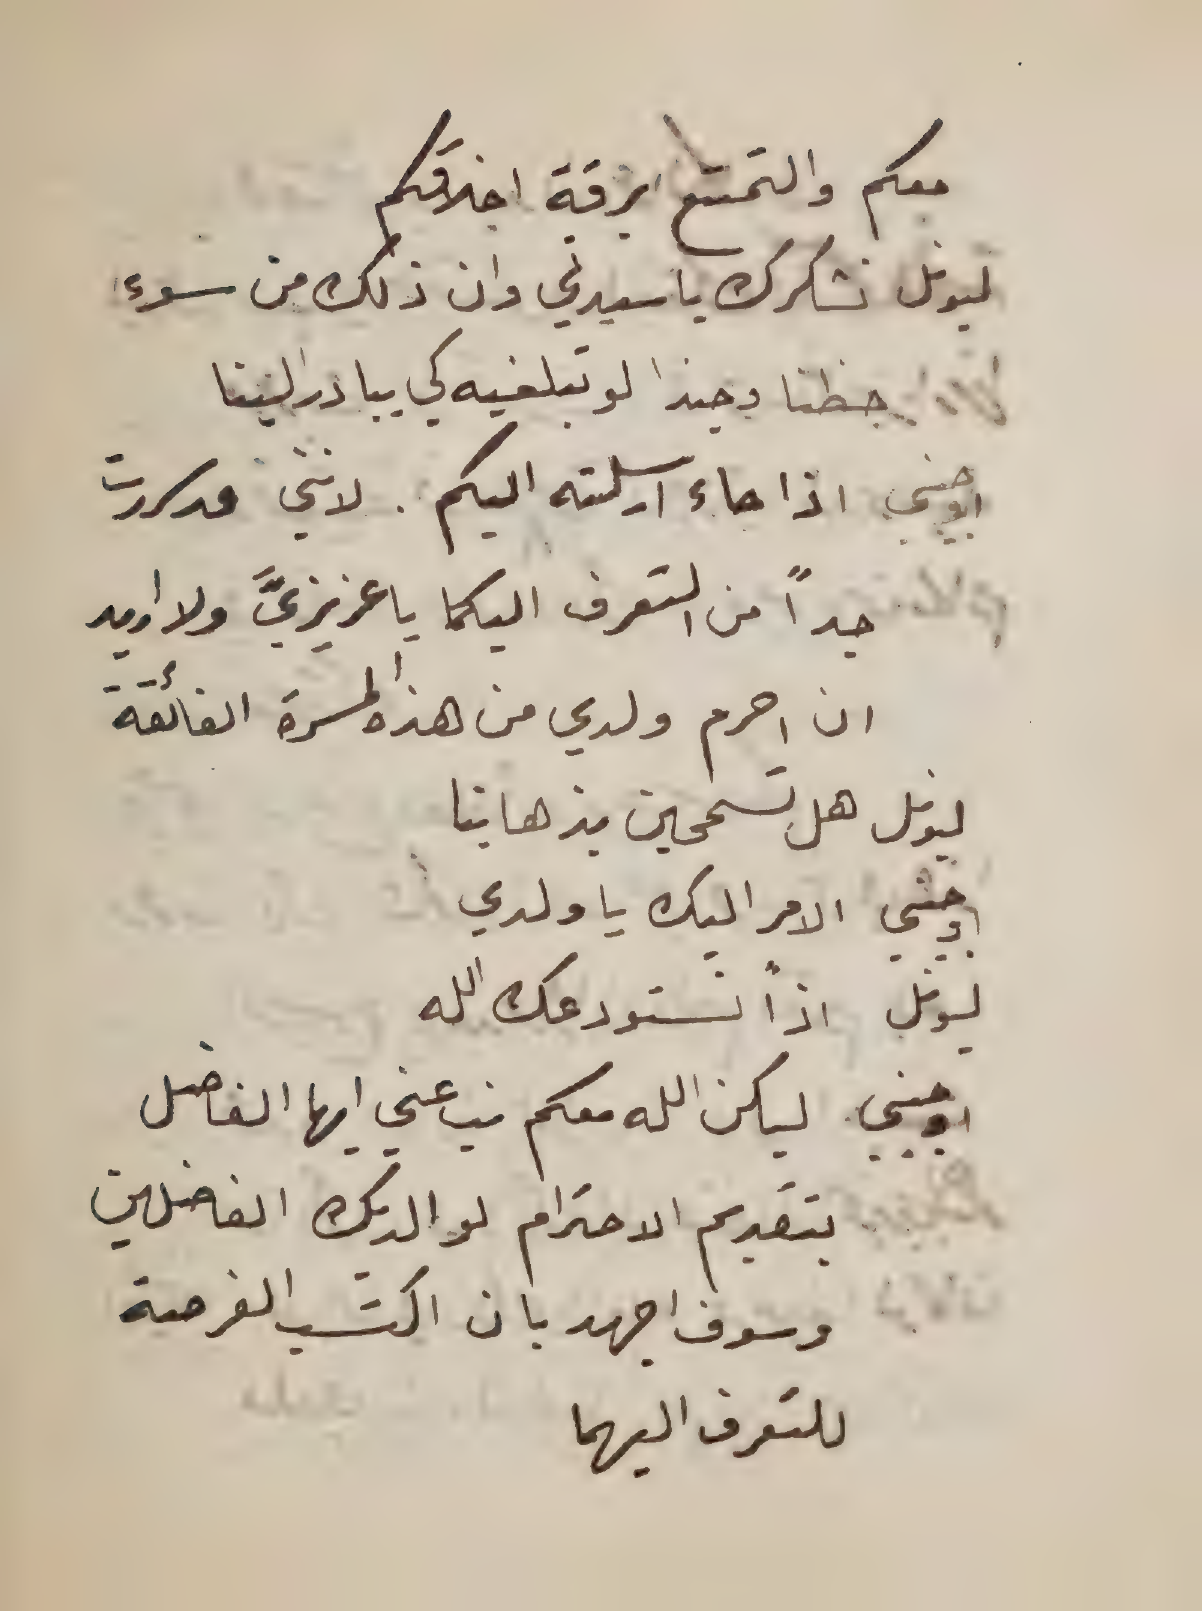 معكم والتمتع برقة اخلاقكم
ليونل نشكرك يا سيدتي وان ذلك من سوء
حظنا وحبذا لو تبلغيه كي يبادر الينا
اوجني اذا جاء ارسلته اليكم . لانني قد سررت
جداً من التعرف اليكما يا عزيزيَّ ولا اريد
ان احرم ولدي من هذه المسرة الفائقة
ليونل هل تسمحين بذهابنا
اوجني الامر اليك يا ولدي
ليونل اذاً نستودعك الله
اوجني ليكن الله معكم نب عني ايها الفاضل
بتقديم الاحترام لوالديك الفاضلين
وسوف اجهد بان اكتسب الفرصة
للتعرف اليهما